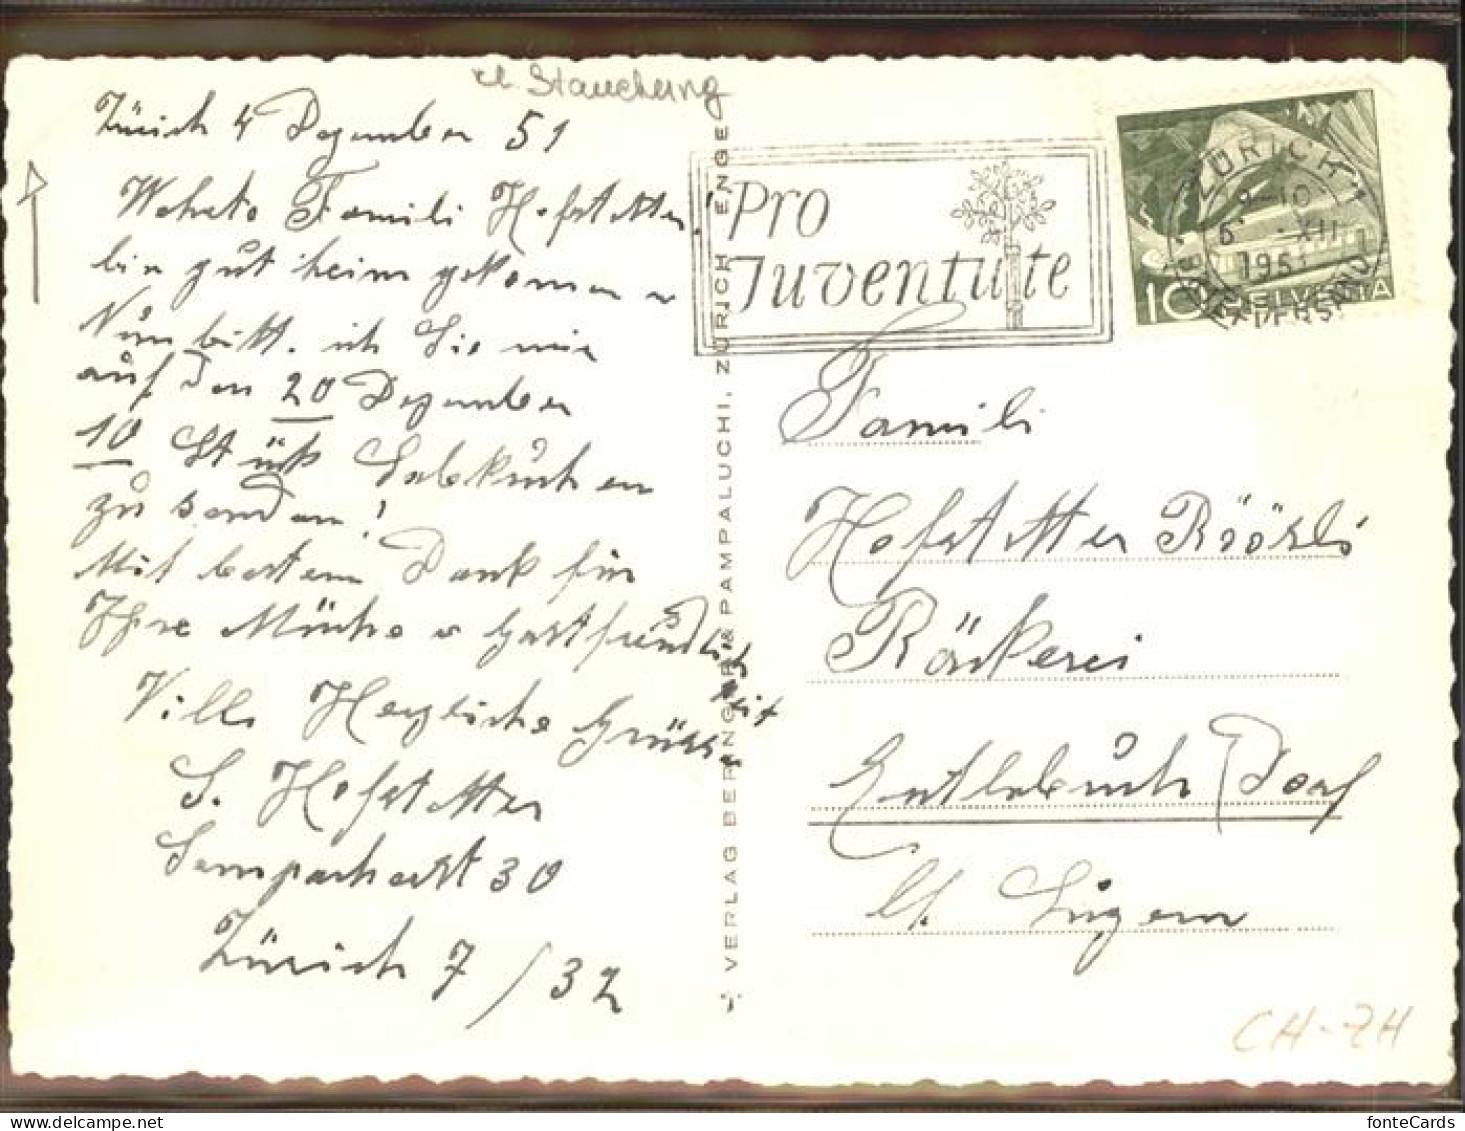 kl. Stauchung
Zürich 4 Dezember 51
Werte Famili Hofstetter!
bin gut heim gekomen u
Nun bitt. ich Sie mir
auf den 20 Dezember
10 Stück Lebkuchen
zu senden!
Mit bestem Dank für
Ihre Mühe u Gastfreundlich
keit
Ville Herzliche Grüsse
S. Hofstetter
Sempacherst 30
Zürich 7 / 32
VERLAG BERINGER & PAMPALUCHI, ZÜRICH ENGE
Pro
Juventute
ZÜRICH 1
9-10
6. XII
1951
BRIEFVERSAND
10 HELVETIA
Famili
Hofstetter Röösli
Bäckerei
Entlebuch (Dorf
Kt. Luzern
CH-ZH
fonteCards